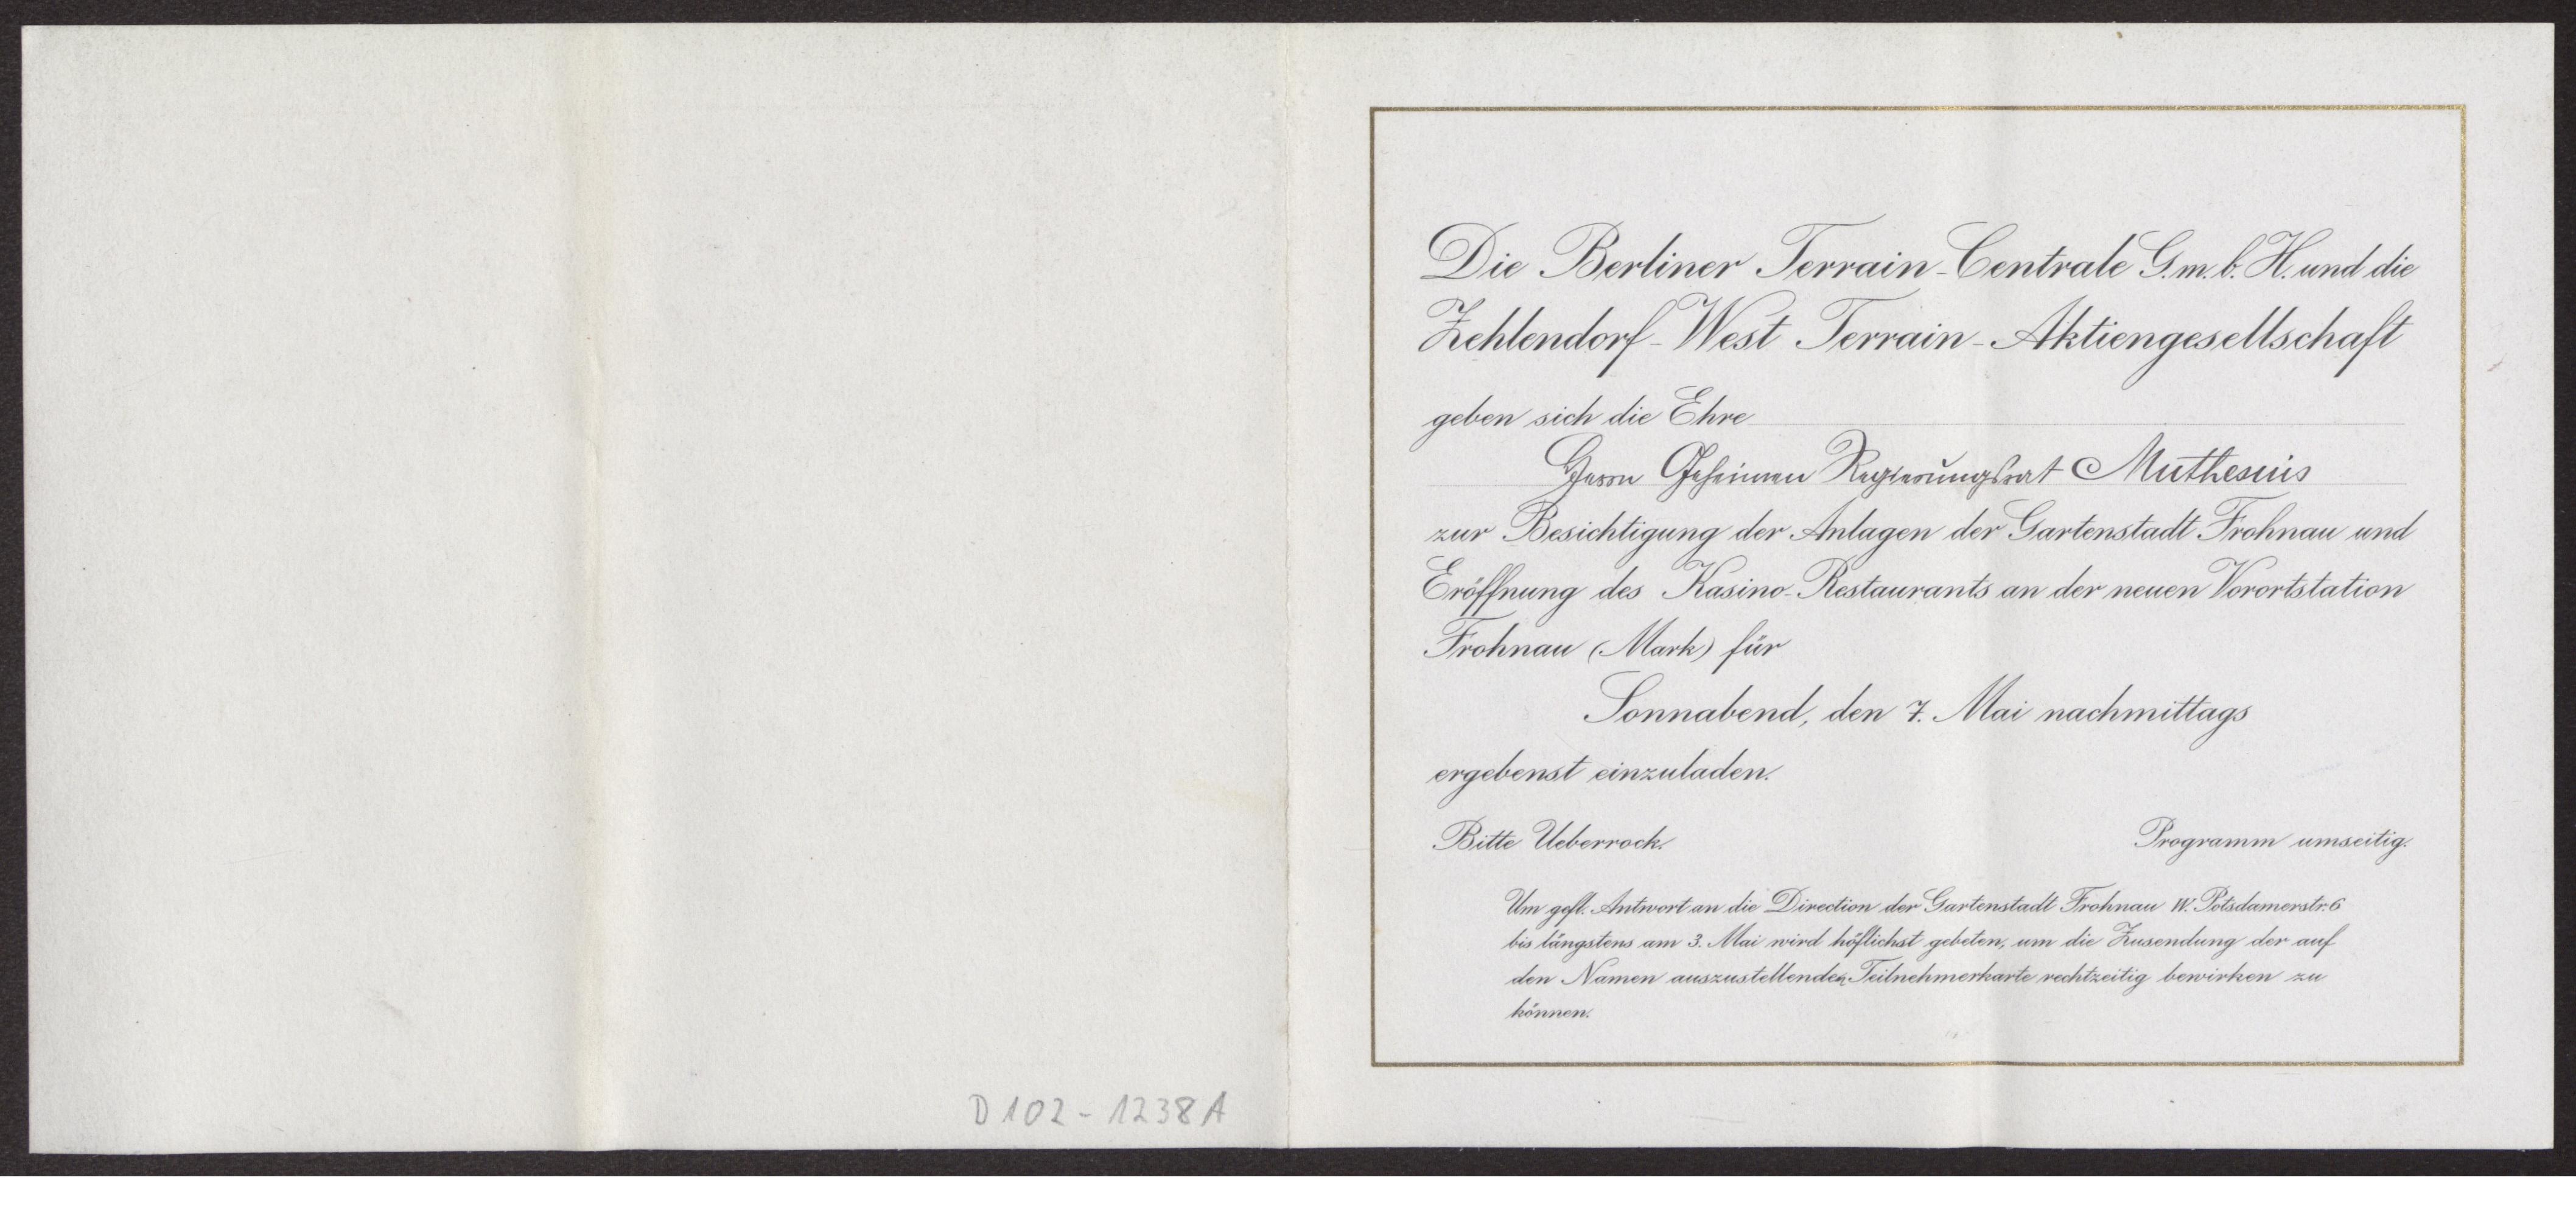 Die Berliner Terrain-Centrale G.m.b.H. und die
Zehlendorf-West Terrain-Aktiengesellschaft
geben sich die Ehre
Herrn Geheimen Regierungsrat Muthesius
zur Besichtigung der Anlagen der Gartenstadt Frohnau und
Eröffnung des Kasino-Restaurants an der neuen Vorortstation
Frohnau (Mark) für
Sonnabend, den 7. Mai nachmittags
ergebenst einzuladen.
Bitte Ueberrock.
Programm umseitig.
Um gefl. Antwort an die Direction der Gartenstadt Frohnau W. Potsdamerstr. 6
bis längstens am 3. Mai wird höflichst gebeten, um die Zusendung der auf
den Namen auszustellenden Teilnehmerkarte rechtzeitig bewirken zu
können.
D 102 - 1238 A